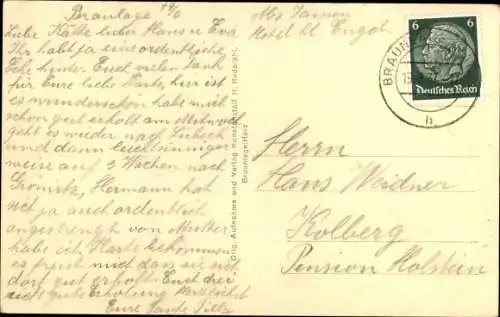 Braunlage 12/6
Liebe Käthe lieber Hans u Eva
Ihr habt ja eine ordentliche
hinter Euch vielen Dank
für Eure liebe Karte, hier ist
es wunderschön habe mich
schon gut erholt am Mittwoch
geht es wieder nach Lübeck
und dann
weise auf 3 Wochen nach
Grömitz, Hermann hat
sich ja auch ordentlich
angestrengt von Mutter
habe ich Karte bekommen
es freut mich dass sie sich
dort gut erholt. Euch drei
gute Erholung herzlichst
Eure Tante Tilly
Abs Jansen
Hotel bl. Engel
Orig. Aufnahme und Verlag Kunstanstalt H. Rudolphi,
Braunlage/Harz
6 6
Deutsches Reich
BRAUN
h
Herrn
Hans Weidner
Kolberg
Pension Holstein